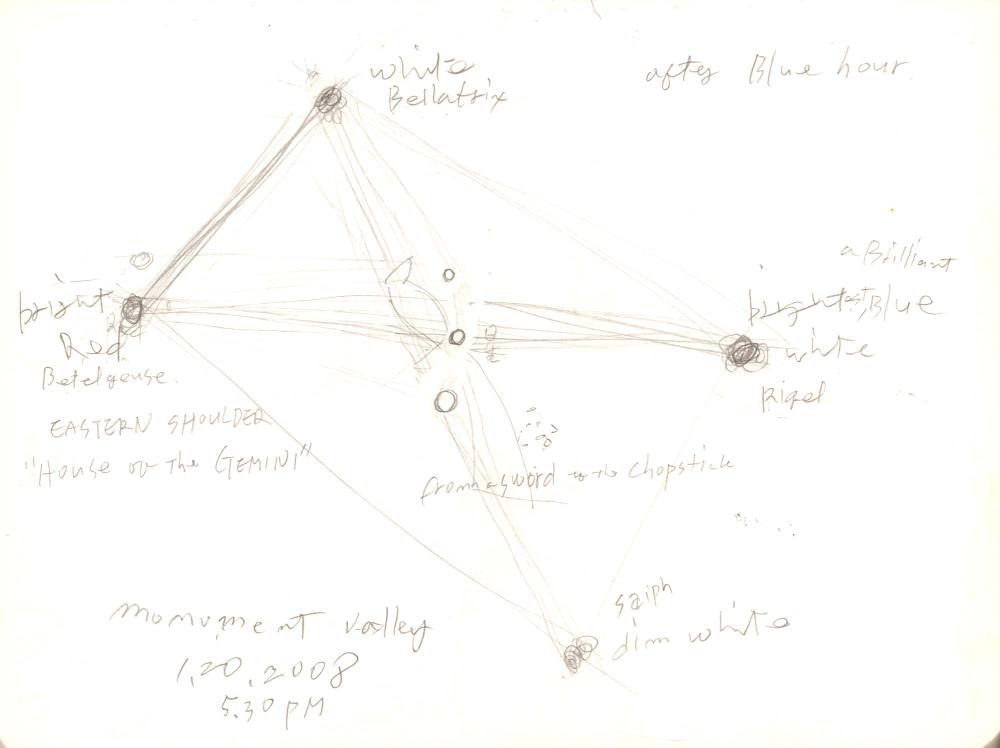 white
Bellatrix
after Blue hour
a Brilliant
brightest, Blue
white
Rigel
bright
Red
Betelgeuse.
EASTERN SHOULDER
"HOUSE OF The GEMINI"
from a sword to the chopstick
saiph
dim white
monument valley
1,20,2008
5.30 PM